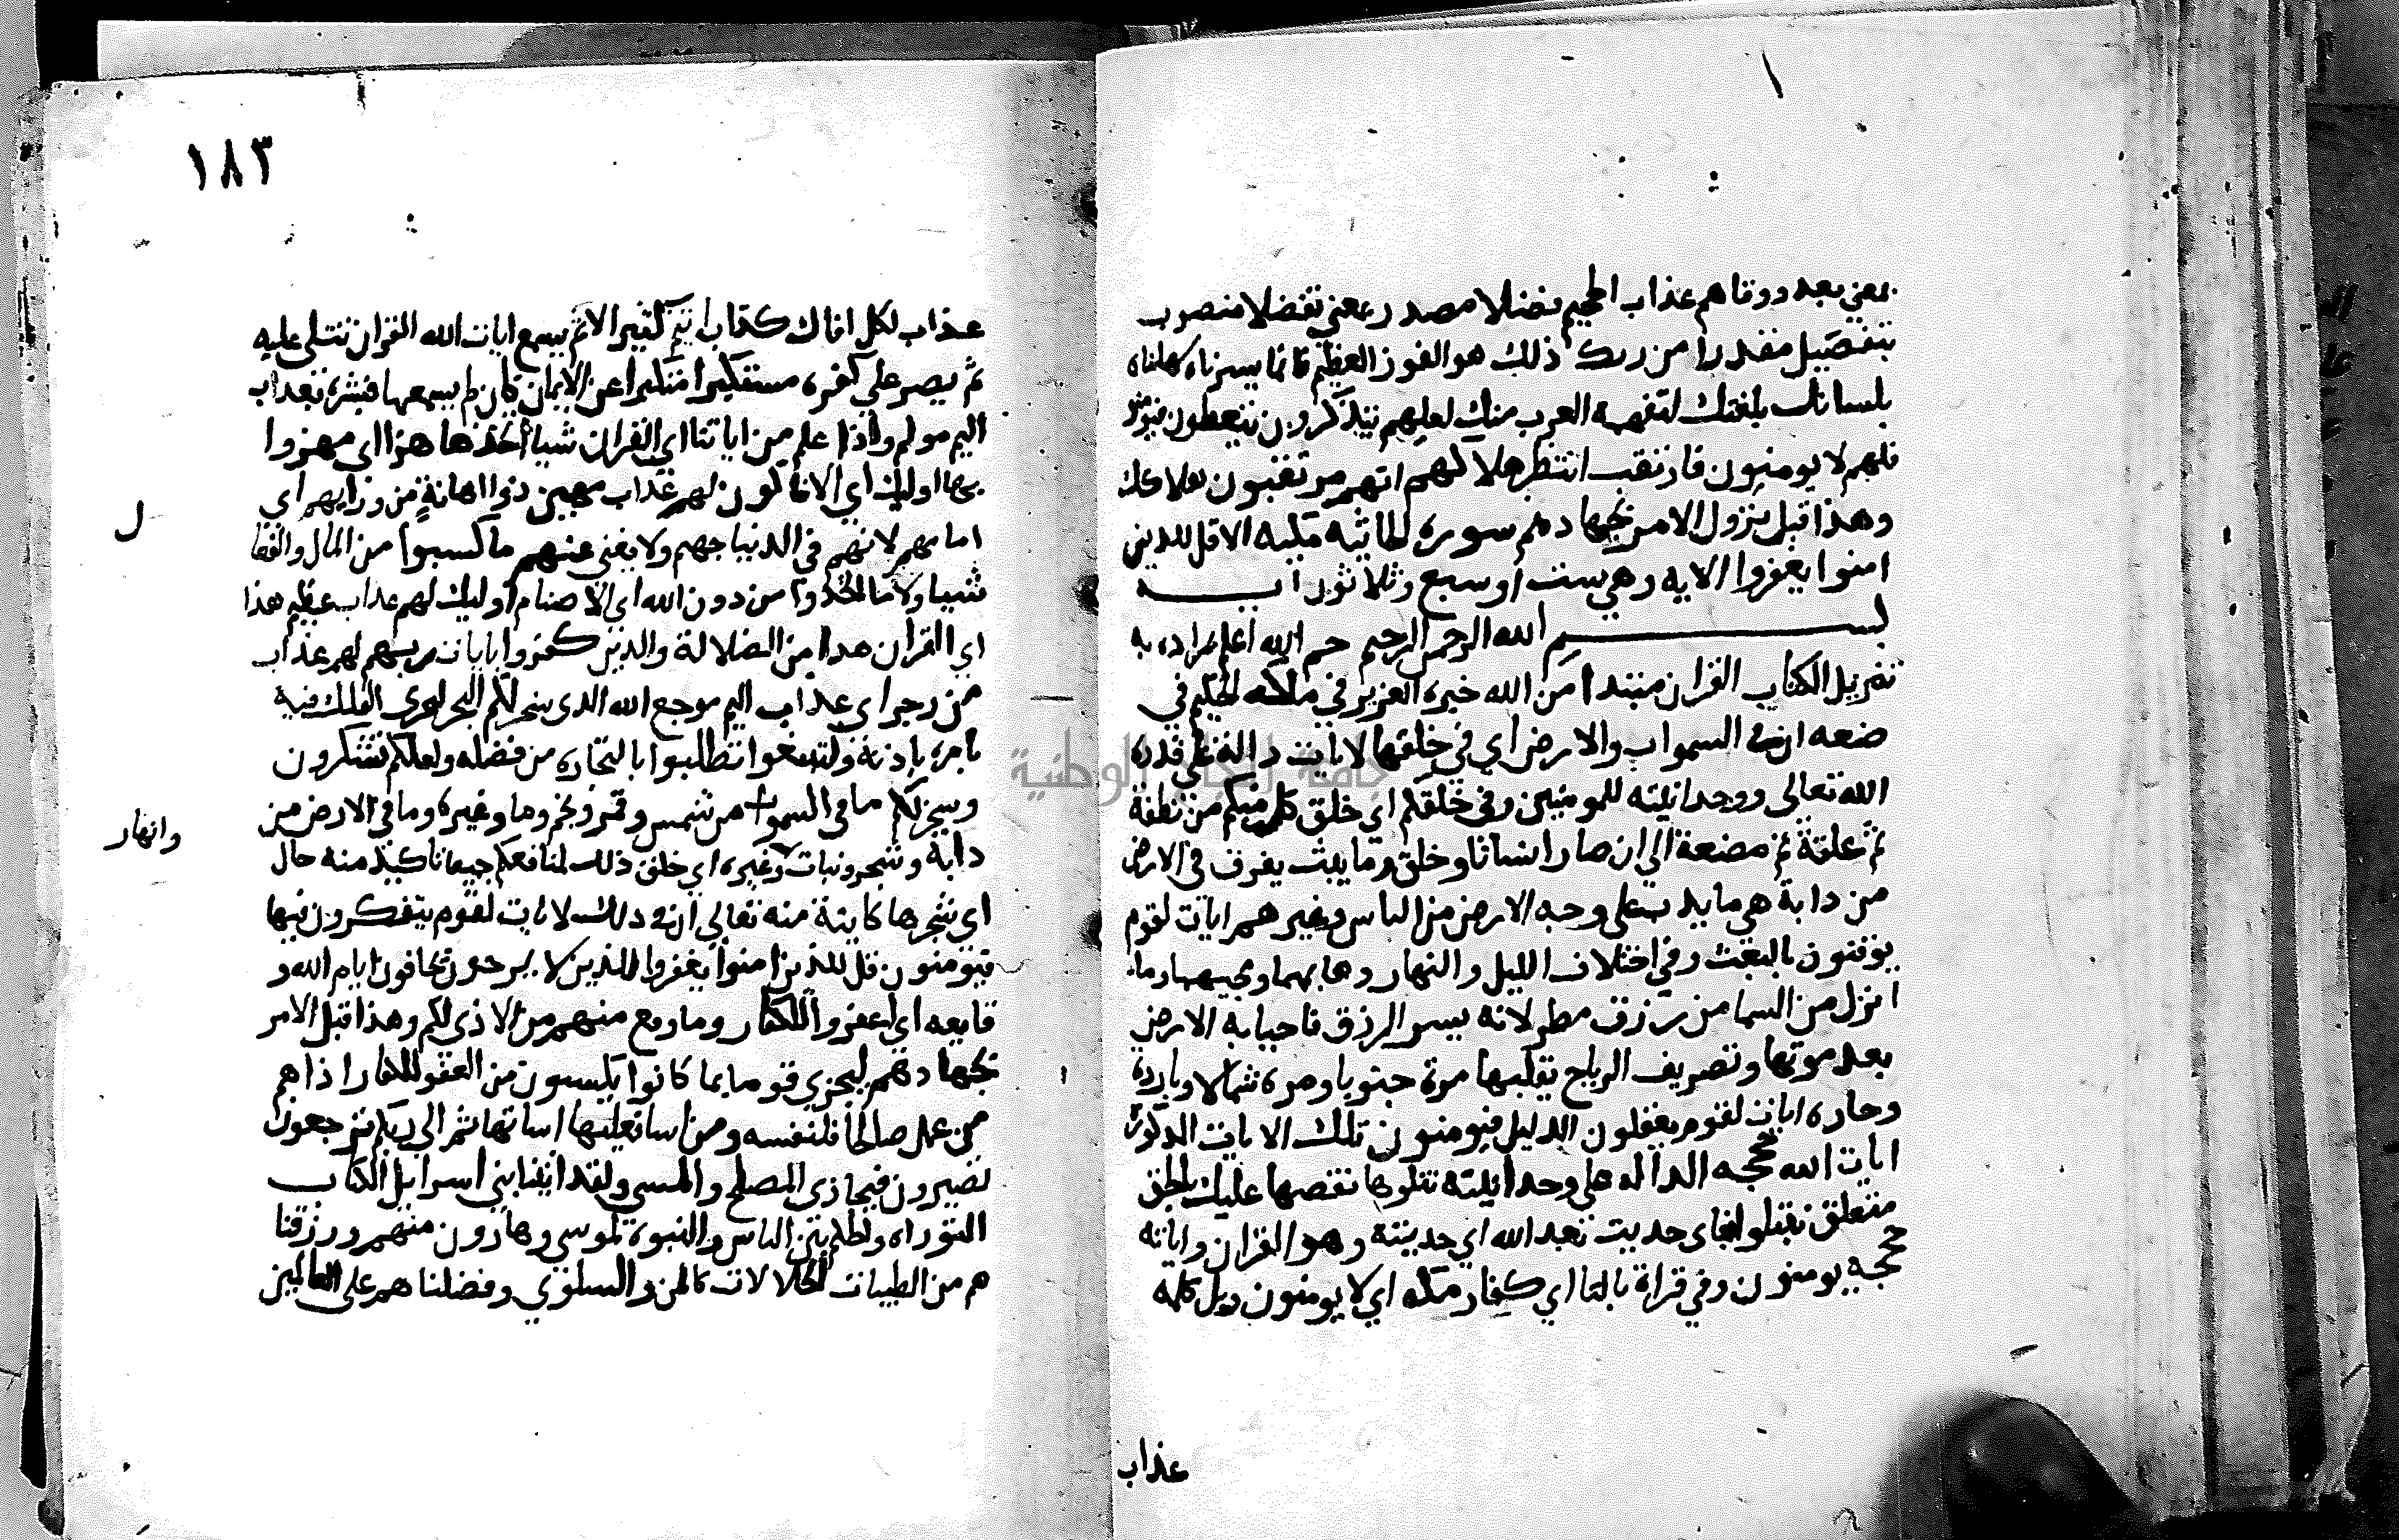 بمعني بعد ووقاهم عذاب الجحيم فضلا مصدر بمعني تفضلا منصوب
بتفضيل مقدرا من ربك ذلك هو الفوز العظيم فانما يسرناه سهلناه
بلسانك بلغتك لتفهمه العرب منك لعلهم يتذكرون يتعظون فيومنو
فلهم لا يومنون فارتقب انتظر هلاكهم انهم مرتقبون هلاكك
وهذا قبل نزول الامر بجهادهم سورة الجاثيه مكيه الا قل للذين
امنوا يغفروا الايه وهي ست او سبع وثلاثون ايه
بسم الله الرحمن الرحيم حم الله اعلم بمراده به
تنزيل الكتاب القران مبتدا من الله خبره العزيز في ملكه الحكيم في
صنعه ان في السموات والارض اي في خلقها لايات دالة علي قدرة
الله تعالي ووحدانيته للمومنين وفي خلقكم اي خلق كل منكم من نطفة
ثم علقة ثم مضغة الي ان صار انسانا وخلق وما يبث يفرق في الارض
من دابة هي ما يدب علي وجه الارض من الناس وغيرهم ايات لقوم
يوقنون بالبعث وفي اختلاف الليل والنهار وذهابهما ومجيهما وما
انزل من السما من رزق مطر لانه يسبب الرزق فاحيا به الارض
بعد موتها وتصريف الرياح تقلبها مرة جنوبا ومره شمالا وباردة
وحاره ايات لقوم يعقلون الدليل فيومنون تلك الايات المذكورة
ايات الله حججه الداله علي وحدانيته نتلوها نقصها عليك بالحق
متعلق بنتلوا فباي حديت بعد الله اي حديثه وهو القران واياته
حججه يومنون وفي قراة بالتا اي كفار مكه اي لا يومنون ويل كلمه
عذاب
١٨٣
عذاب لكل افاك كذاب اثيم كثير الاثم يسمع ايات الله القران تتلي عليه
ثم يصر علي كفره مستكبرا متكبرا عن الايمان كان لم يسمعها فبشره بعذاب
اليم مولم واذا علم من اياتنا اي القران شيا اتخذها هزوا اي مهزوا
بها اوليك اي الافاكون لهم عذاب مهين ذوا اهانة من ورايهم اي
امامهم لانهم في الدنيا جهنم ولا يغني عنهم ما كسبوا من المال والفعا
ل
شييا ولا ما اتخذوا من دون الله اي الاصنام اوليك لهم عذاب عظيم هذا
اي القران هدا من الضلالة والذين كفروا بايات ربهم لهم عذاب
من رجز اي عذاب اليم موجع الله الذي سخر لكم البحر لتجري الفلك فيه
بامره باذنه ولتبتغوا تطلبوا بالتجاره من فضله ولعلكم تشكرون
وسخر لكم ما في السموات من شمس وقمر ونجوم وما وغيره وما في الارض من
دابة وشجر ونبات وغيره اي خلق ذلك لمنافعكم جميعا تاكيد منه حال
وانهار
اي سخرها كاينة منه تعالي ان في ذلك لايات لقوم يتفكرون فيها
فيومنون قل للذين امنوا يغفروا للذين لا يرجون يخافون ايام الله و
قايعه اي اغفروا للكفار وما وقع منهم من الاذي لكم وهذا قبل الامر
بجهادهم ليجزي قوما بما كانوا يكسبون من العفو للكفار اذاهم
من عمل صالحا فلنفسه ومن اسا فعليها اساتها ثم الي ربكم ترجعون
تصيرون فيجازي المصلح والمسي ولقد اتينا بني اسرايل الكتاب
التوراه والحكم بين الناس والنبوة لموسي وهارون منهم ورزقنا
هم من الطيبات الحلالات كالمن والسلوي وفضلناهم علي العالمين